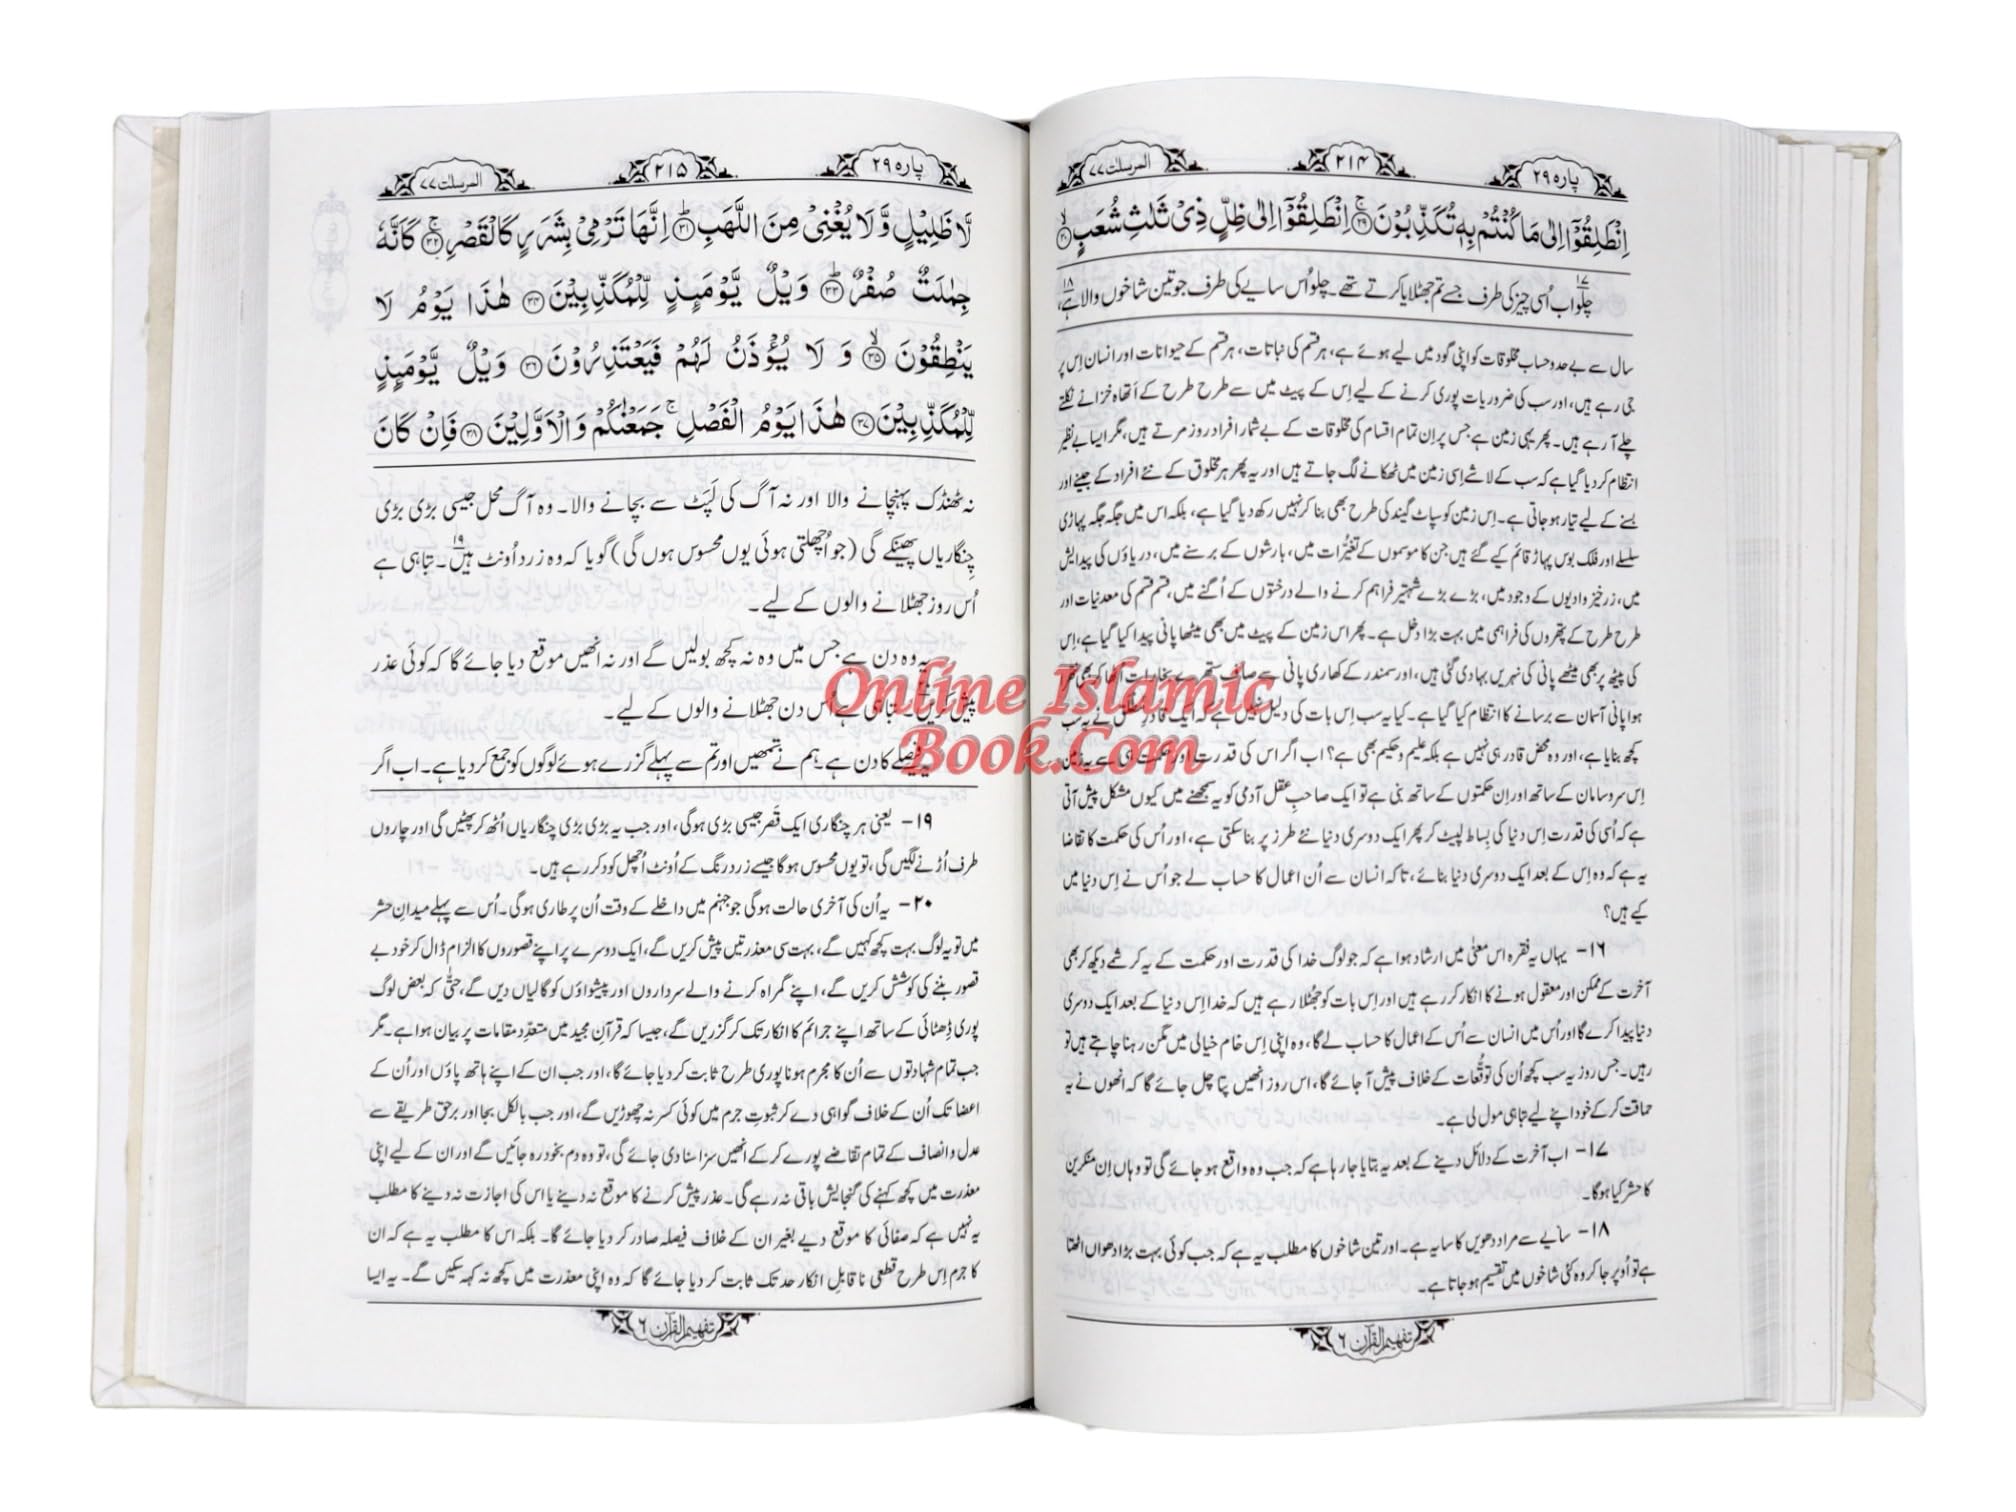 پارہ ۲۹
۲۱۴
المرسلت ۷۷
اِنْطَلِقُوْٓا اِلٰى مَا كُنْتُمْ بِهٖ تُكَذِّبُوْنَ ۚ۝۲۹ اِنْطَلِقُوْٓا اِلٰى ظِلٍّ ذِيْ ثَلٰثِ شُعَبٍ ۙ۝۳۰
چلو۱۷ اب اُسی چیز کی طرف جسے تم جھٹلایا کرتے تھے۔ چلو اُس سایے کی طرف جو تین شاخوں والا ہے۱۸،
سال سے بے حد و حساب مخلوقات کو اپنی گود میں لیے ہوئے ہے، ہر قسم کی نباتات، ہر قسم کے حیوانات اور انسان اِس پر
جی رہے ہیں، اور سب کی ضروریات پوری کرنے کے لیے اِس کے پیٹ میں سے طرح طرح کے اَتھاہ خزانے نکلتے
چلے آ رہے ہیں۔ پھر یہی زمین ہے جس پر اِن تمام اقسام کی مخلوقات کے بے شمار افراد روز مرتے ہیں، مگر ایسا بے نظیر
انتظام کر دیا گیا ہے کہ سب کے لاشے اِسی زمین میں ٹھکانے لگ جاتے ہیں اور یہ پھر ہر مخلوق کے نئے افراد کے جینے اور
بسنے کے لیے تیار ہو جاتی ہے۔ اِس زمین کو سپاٹ گیند کی طرح بھی بنا کر نہیں رکھ دیا گیا ہے، بلکہ اس میں جگہ جگہ پہاڑی
سلسلے اور فلک بوس پہاڑ قائم کیے گئے ہیں جن کا موسموں کے تغیُّرات میں، بارشوں کے برسنے میں، دریاؤں کی پیدایش
میں، زرخیز وادیوں کے وجود میں، بڑے بڑے شہتیر فراہم کرنے والے درختوں کے اُگنے میں، قسم قسم کی معدنیات اور
طرح طرح کے پتھروں کی فراہمی میں بہت بڑا دخل ہے۔ پھر اس زمین کے پیٹ میں بھی میٹھا پانی پیدا کیا گیا ہے، اِس
کی پیٹھ پر بھی میٹھے پانی کی نہریں بہا دی گئی ہیں، اور سمندر کے کھاری پانی سے صاف ستھرے بخارات اٹھا کر بھی
ہوا پانی آسمان سے برسانے کا انتظام کیا گیا ہے۔ کیا یہ سب اِس بات کی دلیل نہیں ہے کہ ایک قادرِ مطلق نے یہ سب
کچھ بنایا ہے، اور وہ محض قادر ہی نہیں ہے بلکہ علیم و حکیم بھی ہے؟ اب اگر اس کی قدرت اور حکمت ہی سے یہ زمین
اِس سر و سامان کے ساتھ اور اِن حکمتوں کے ساتھ بنی ہے تو ایک صاحبِ عقل آدمی کو یہ سمجھنے میں کیوں مشکل پیش آتی
ہے کہ اُسی کی قدرت اِس دنیا کی بِساط لپیٹ کر پھر ایک دوسری دنیا نئے طرز پر بنا سکتی ہے، اور اُس کی حکمت کا تقاضا
یہ ہے کہ وہ اِس کے بعد ایک دوسری دنیا بنائے، تاکہ انسان سے اُن اعمال کا حساب لے جو اُس نے اِس دنیا میں
کیے ہیں؟
۱۶- یہاں یہ فقرہ اس معنٰی میں ارشاد ہوا ہے کہ جو لوگ خدا کی قدرت اور حکمت کے یہ کرشمے دیکھ کر بھی
آخرت کے ممکن اور معقول ہونے کا انکار کر رہے ہیں اور اِس بات کو جھٹلا رہے ہیں کہ خدا اِس دنیا کے بعد ایک دوسری
دنیا پیدا کرے گا اور اُس میں انسان سے اُس کے اعمال کا حساب لے گا، وہ اپنی اِس خام خیالی میں مگن رہنا چاہتے ہیں تو
رہیں۔ جس روز یہ سب کچھ اُن کی توقُّعات کے خلاف پیش آ جائے گا، اس روز انھیں پتا چل جائے گا کہ انھوں نے یہ
حماقت کر کے خود اپنے لیے تباہی مول لی ہے۔
۱۷- اب آخرت کے دلائل دینے کے بعد یہ بتایا جا رہا ہے کہ جب وہ واقع ہو جائے گی تو وہاں اِن منکرین
کا حشر کیا ہوگا۔
۱۸- سایے سے مراد دھویں کا سایہ ہے۔ اور تین شاخوں کا مطلب یہ ہے کہ جب کوئی بہت بڑا دھواں اٹھتا
ہے تو اُوپر جا کر وہ کئی شاخوں میں تقسیم ہو جاتا ہے۔
تفہیم القرآن ۶
پارہ ۲۹
۲۱۵
المرسلت ۷۷
لَّا ظَلِيْلٍ وَّلَا يُغْنِيْ مِنَ اللَّهَبِ ؕ۝۳۱ اِنَّهَا تَرْمِيْ بِشَرَرٍ كَالْقَصْرِ ۚ۝۳۲ كَاَنَّهٗ
جِمٰلَتٌ صُفْرٌ ؕ۝۳۳ وَيْلٌ يَّوْمَىِٕذٍ لِّلْمُكَذِّبِيْنَ ۝۳۴ هٰذَا يَوْمُ لَا
يَنْطِقُوْنَ ۙ۝۳۵ وَ لَا يُؤْذَنُ لَهُمْ فَيَعْتَذِرُوْنَ ۝۳۶ وَيْلٌ يَّوْمَىِٕذٍ
لِّلْمُكَذِّبِيْنَ ۝۳۷ هٰذَا يَوْمُ الْفَصْلِ ۚ جَمَعْنٰكُمْ وَالْاَوَّلِيْنَ ۝۳۸ فَاِنْ كَانَ
نہ ٹھنڈک پہنچانے والا اور نہ آگ کی لَپَٹ سے بچانے والا۔ وہ آگ محل جیسی بڑی بڑی
چنگاریاں پھینکے گی (جو اُچھلتی ہوئی یوں محسوس ہوں گی) گویا کہ وہ زرد اُونٹ ہیں۱۹۔ تباہی ہے
اُس روز جھٹلانے والوں کے لیے۔
یہ وہ دن ہے جس میں وہ نہ کچھ بولیں گے اور نہ انھیں موقع دیا جائے گا کہ کوئی عذر
پیش کریں۔ تباہی ہے اُس دن جھٹلانے والوں کے لیے۔
یہ فیصلے کا دن ہے۔ ہم نے تمھیں اور تم سے پہلے گزرے ہوئے لوگوں کو جمع کر دیا ہے۔ اب اگر
۱۹- یعنی ہر چنگاری ایک قَصر جیسی بڑی ہوگی، اور جب یہ بڑی بڑی چنگاریاں اُٹھ کر پھٹیں گی اور چاروں
طرف اُڑنے لگیں گی، تو یوں محسوس ہوگا جیسے زرد رنگ کے اُونٹ اُچھل کود کر رہے ہیں۔
۲۰- یہ اُن کی آخری حالت ہوگی جو جہنم میں داخلے کے وقت اُن پر طاری ہوگی۔ اُس سے پہلے میدانِ حشر
میں تو یہ لوگ بہت کچھ کہیں گے، بہت سی معذرتیں پیش کریں گے، ایک دوسرے پر اپنے قصوروں کا الزام ڈال کر خود بے
قصور بننے کی کوشش کریں گے، اپنے گمراہ کرنے والے سرداروں اور پیشواؤں کو گالیاں دیں گے، حتّٰی کہ بعض لوگ
پوری ڈِھٹائی کے ساتھ اپنے جرائم کا انکار تک کر گزریں گے، جیسا کہ قرآن مجید میں متعدِّد مقامات پر بیان ہوا ہے۔ مگر
جب تمام شہادتوں سے اُن کا مجرم ہونا پوری طرح ثابت کر دیا جائے گا، اور جب ان کے اپنے ہاتھ پاؤں اور اُن کے
اعضا تک اُن کے خلاف گواہی دے کر ثبوتِ جرم میں کوئی کسر نہ چھوڑیں گے، اور جب بالکل بجا اور برحق طریقے سے
عدل و انصاف کے تمام تقاضے پورے کر کے انھیں سزا سنا دی جائے گی، تو وہ دم بخود رہ جائیں گے اور ان کے لیے اپنی
معذرت میں کچھ کہنے کی گنجایش باقی نہ رہے گی۔ عذر پیش کرنے کا موقع نہ دینے یا اس کی اجازت نہ دینے کا مطلب
یہ نہیں ہے کہ صفائی کا موقع دیے بغیر ان کے خلاف فیصلہ صادر کر دیا جائے گا۔ بلکہ اس کا مطلب یہ ہے کہ ان
کا جرم اِس طرح قطعی ناقابلِ انکار حد تک ثابت کر دیا جائے گا کہ وہ اپنی معذرت میں کچھ نہ کہہ سکیں گے۔ یہ ایسا
تفہیم القرآن ۶
Online Islamic
Book.Com